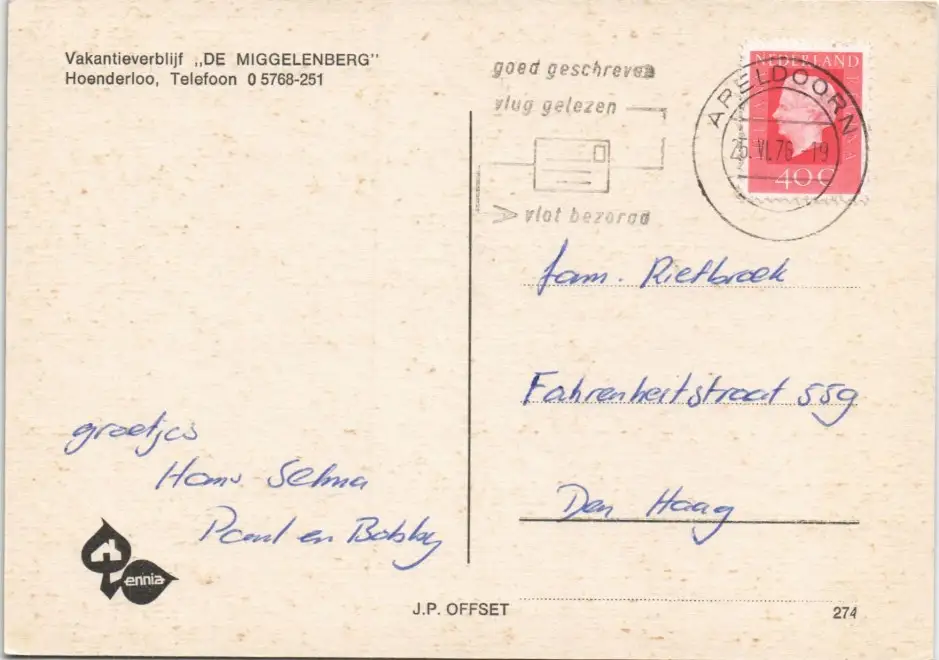 Vakantieverblijf „DE MIGGELENBERG"
Hoenderloo, Telefoon 0 5768-251
goed geschreven
vlug gelezen
vlot bezorgd
APELDOORN
25.VI.76 19
NEDERLAND
JULIANA REGINA
40 C
fam. Rietbroek
Fahrenheitstraat 559
Den Haag
groetjes
Hans Selma
Paul en Bobby
ennia
J.P. OFFSET
274